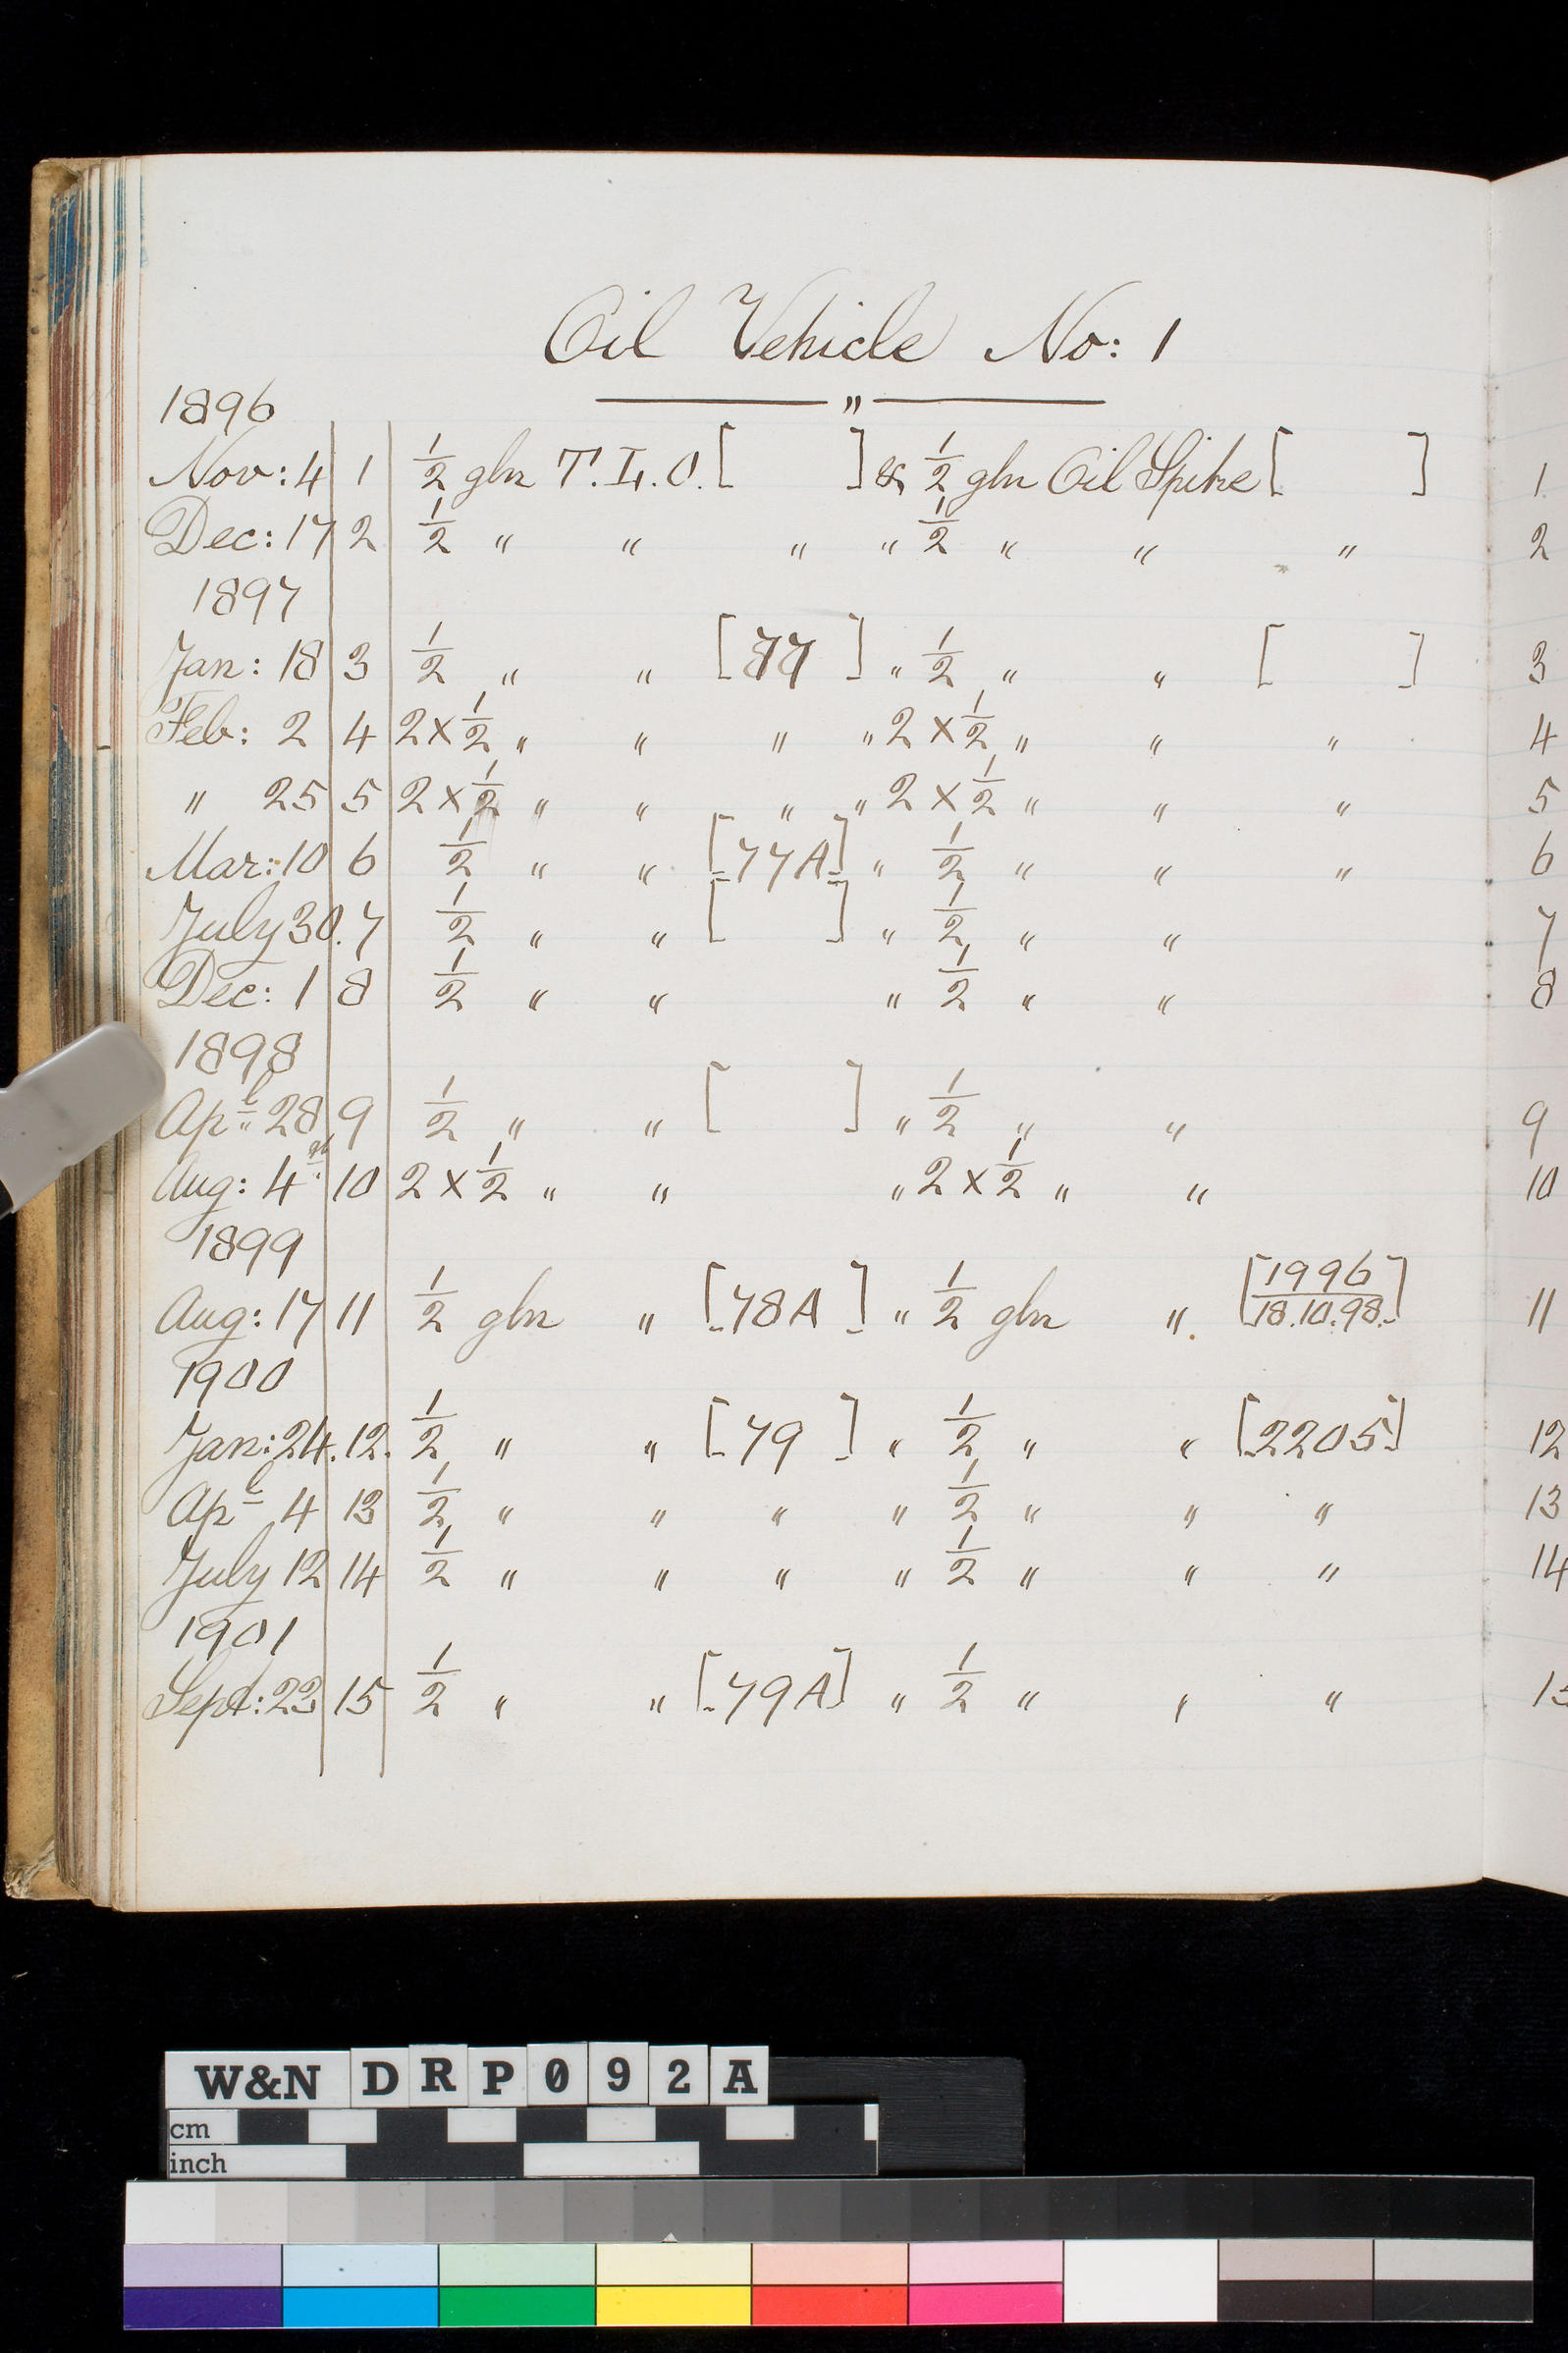 Oil Vehicle No: 1
"
1896
Nov: 4 1 1/2 gln T. L. O. [ ] & 1/2 gln Oil Spike [ ] 1
Dec: 17 2 1/2 " " " " 1/2 " " " 2
1897
Jan: 18 3 1/2 " " [77] " 1/2 " " [ ] 3
Feb: 2 4 2 x 1/2 " " " " 2 x 1/2 " " " 4
" 25 5 2 x 1/2 " " " " 2 x 1/2 " " " 5
Mar: 10 6 1/2 " " [77A] " 1/2 " " " 6
July 30. 7 1/2 " " [ ] " 1/2 " " 7
Dec: 1 8 1/2 " " " 1/2 " " 8
1898
Apl 28 9 1/2 " " [ ] " 1/2 " " 9
Aug: 4th 10 2 x 1/2 " " " 2 x 1/2 " " 10
1899
Aug: 17 11 1/2 gln " [78A] " 1/2 gln " [1996 / 18.10.98.] 11
1900
Jan: 24. 12. 1/2 " " [79] " 1/2 " " [2205] 12
Apl 4 13 1/2 " " " " 1/2 " " " 13
July 12 14 1/2 " " " " 1/2 " " " 14
1901
Sept: 23 15 1/2 " " [79A] " 1/2 " " " 15
W&N DRP092A
cm
inch